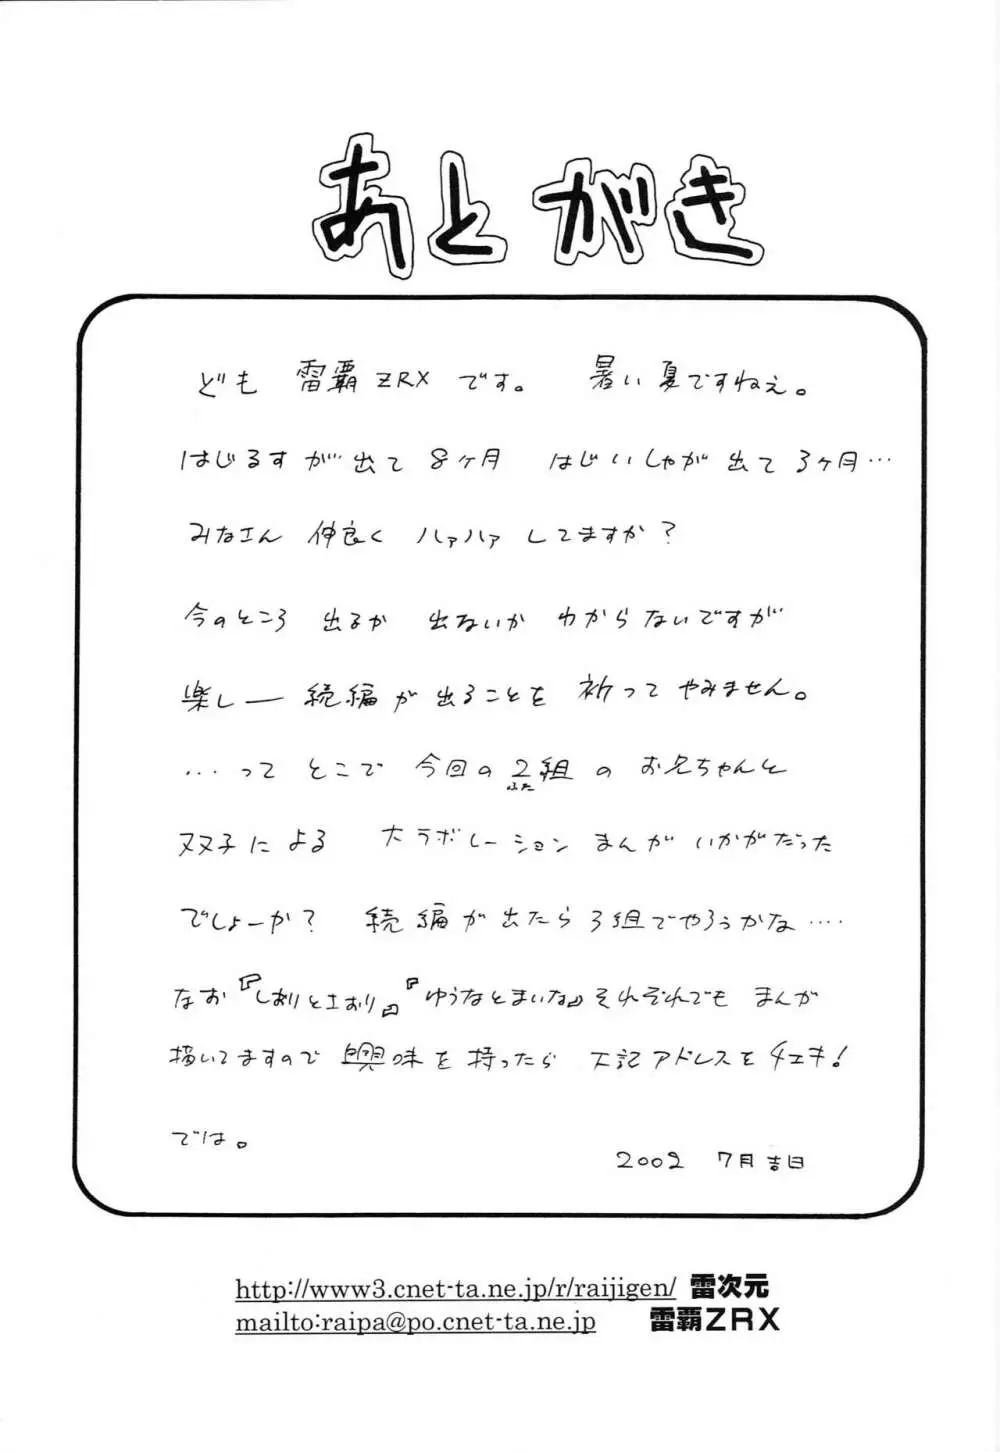 あとがき
ども 雷覇ZRX です。 暑い夏ですねぇ。
はじるすが出て 8ヶ月 はじいしゃが出て 3ヶ月…
みなさん 仲良く ハァハァ してますか?
今のところ 出るか 出ないか わからないですが
楽しー 続編が出ることを 祈ってやみません。
…って とこで 今回の 2組 の お兄ちゃんと
ふた
双子による 大ラボレーション まんが いかがだった
でしょーか? 続編が出たら 3組でやろうかな‥‥
なお『しおりとさおり』『ゆうなとまいな』それぞれでも まんが
描いてますので 興味を持ったら 下記アドレスをチェキ!
では。
2002 7月吉日
http://www3.cnet-ta.ne.jp/r/raijigen/ 雷次元
mailto:raipa@po.cnet-ta.ne.jp 雷覇ZRX